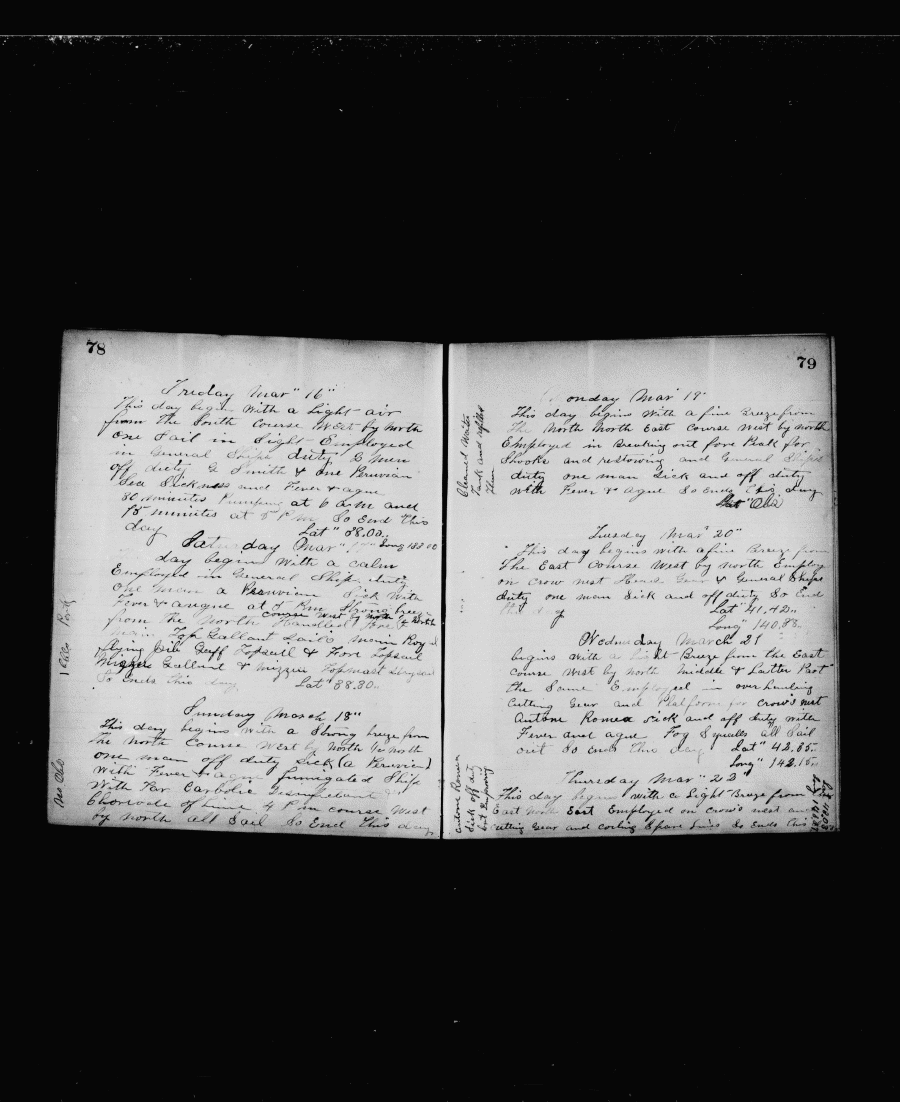 78
Friday Mar" 16"
This day begins With a Light air
from The South Course West by North
One Sail in Sight Employed
in General Ships duty 3 men
off duty G Smith & one Peruvian
Sea Sickness and Fever & ague
30 minutes Pumping at 6 a.m and
15 minutes at 5 P.m. So End This
day Lat" 38.00..
Saturday Mar"
Long
day begins With a calm
Employed in General Ship duty
One man a Peruvian Sick With
Fever & ague at P.m. Strong breeze
course West by North
from the North Handled Fore &
main Top Gallant Sails main Royal
flying Jib Gaff Topsail & Fore Topsail
Mizzen Gallant & mizzen Topmast
So Ends this day Lat" 38.30..
Sunday March 18"
This day begins With a Strong breeze from
The North Course West by North ½ North
one man off duty Sick (a Peruvian)
With Fever & ague fumigated Ship
With Tar Carbolic Disinfectant
Choride of Lime 4 P.m course West
by north all Sail So End This day
No Obs
79
onday Mar 19"
This day begins With a fine Breeze from
The North North East Course West by north
Employed in Breaking out fore Peak for
Shooks and restowing and General Ships
duty one man Sick and off duty
With Fever & Ague So Ends this day
Lat" Obs
Cleaned Water
Tank and refilled
Them
Tuesday Mar" 20"
This day begins with a fine Breeze from
The East Course West by north Employe
on crow nest Head Gear & General Ships
duty one man Sick and off duty So End
this day Lat" 41.42..
Long" 140.83..
Wednesday March 21
begins With a light Breeze from the East
course West by north Middle & Latter Part
the Same Employed in overhauling
Cutting Gear and Platform for crow's nest
Antone Romea Sick and off duty With
Fever and ague Fog Squalls all Sail
out So ends This day Lat" 42.35..
Long" 142.15..
Thursday Mar" 22"
This day begins with a Light Breeze from
East North East Employed on crow's nest and
cutting Gear and coiling Spare Lines So Ends this
Antone Romea
Sick off duty
but Improving